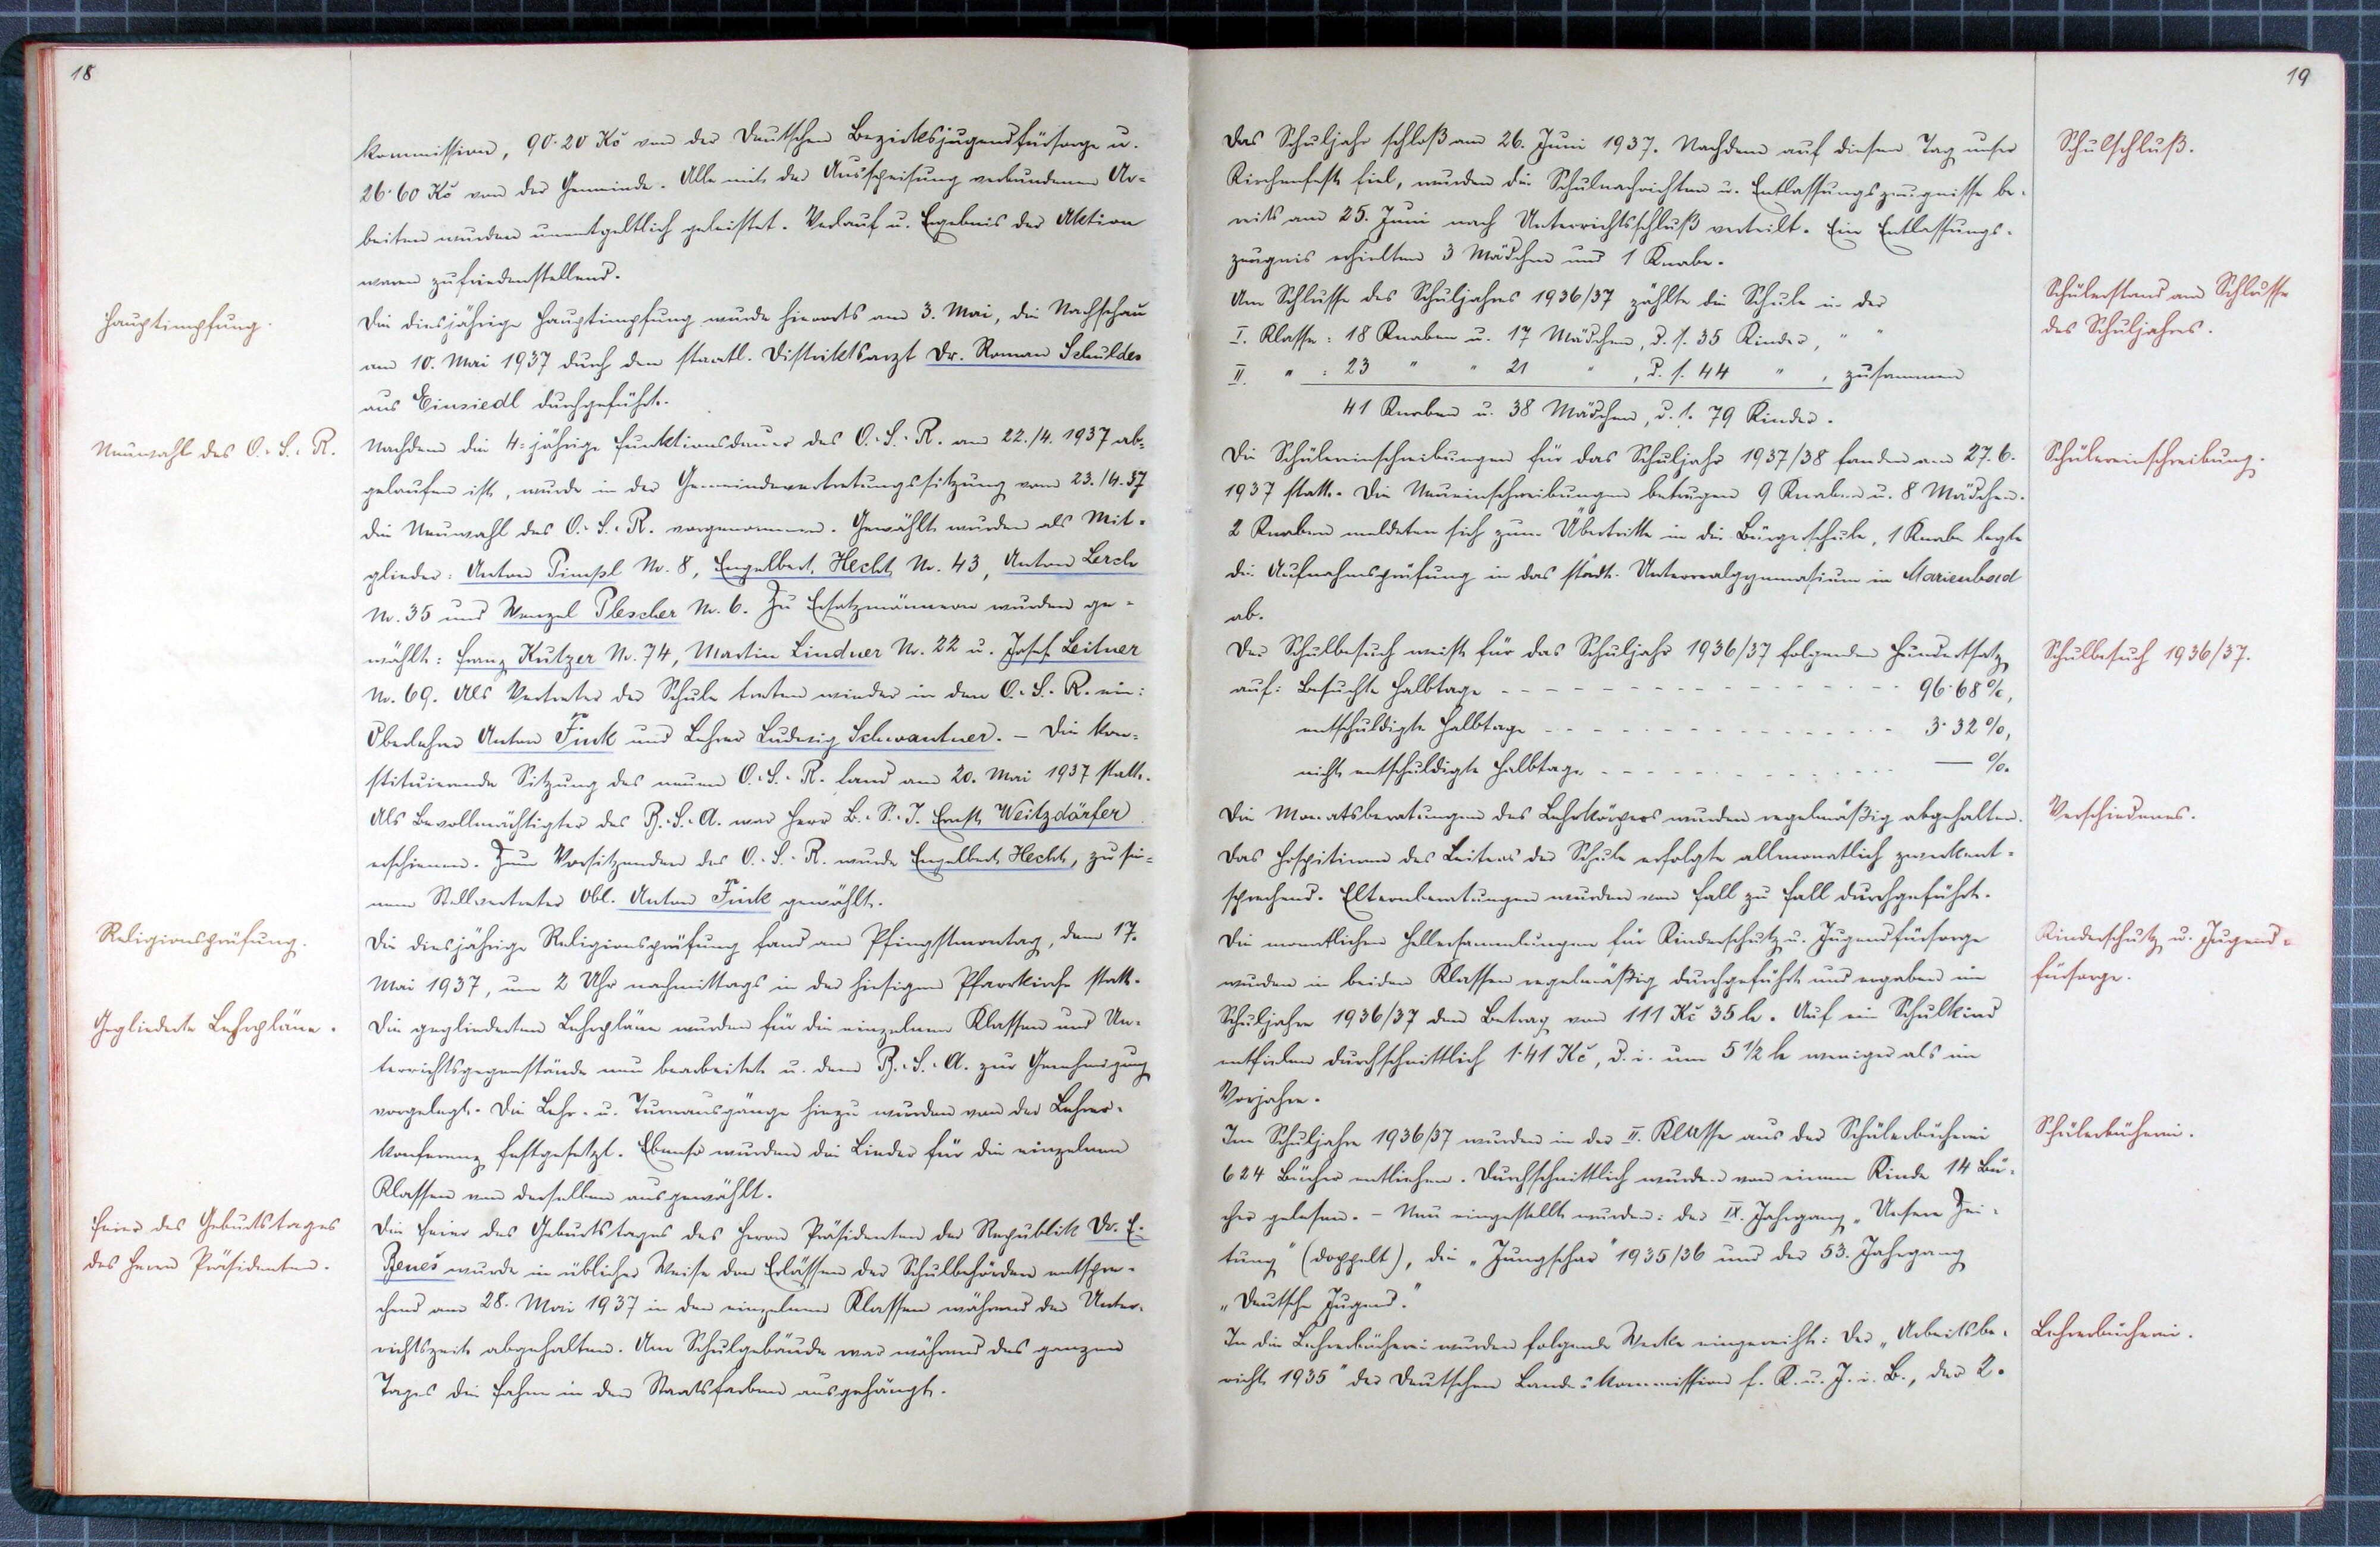 18
kommission, 90·20 Kč von der Deutschen Bezirksjugendfürsorge u.
26·60 Kč von der Gemeinde. Alle mit der Ausspeisung verbundenen Ar-
beiten wurden unentgeltlich geleistet. Verlauf u. Ergebnis der Aktion
waren zufriedenstellend.
Hauptimpfung.
Die diesjährige Hauptimpfung wurde hierorts am 3. Mai, die Nachschau
am 10. Mai 1937 durch den staatl. Distriktsarzt Dr. Roman Schuldes
aus Einsiedl durchgeführt.
Neuwahl des O.S.R.
Nachdem die 4-jährige Funktionsdauer des O.S.R. am 22./4. 1937 ab-
gelaufen ist, wurde in der Gemeindevertretungssitzung vom 23./4.37
die Neuwahl des O.S.R. vorgenommen. Gewählt wurden als Mit-
glieder: Anton Pimpl Nr. 8, Engelbert Hecht Nr. 43, Anton Lerch
Nr. 35 und Wenzel Plescher Nr. 6. Zu Ersatzmännern wurden ge-
wählt: Franz Kutzer Nr. 74, Martin Lindner Nr. 22 u. Josef Leitner
Nr. 69. Als Vertreter der Schule treten wieder in den O.S.R. ein:
Oberlehrer Anton Fink und Lehrer Ludwig Schwantner. – Die kon-
stituierende Sitzung des neuen O.S.R. fand am 20. Mai 1937 statt.
Als Bevollmächtigter des B.S.A. war Herr B.S.I. Ernst Weitzdörfer
erschienen. Zum Vorsitzenden des O.S.R. wurde Engelbert Hecht, zu sei-
nem Stellvertreter Obl. Anton Fink gewählt.
Religionsprüfung.
Die diesjährige Religionsprüfung fand am Pfingstmontag, dem 17.
Mai 1937, um 2 Uhr nachmittags in der hiesigen Pfarrkirche statt.
Gegliederte Lehrpläne.
Die gegliederten Lehrpläne wurden für die einzelnen Klassen und Un-
terrichtsgegenstände neu bearbeitet u. dem B.S.A. zur Genehmigung
vorgelegt. Die Lehr- u. Turnausgänge hiezu wurden von der Lehrer-
konferenz festgesetzt. Ebenso wurden die Lieder für die einzelnen
Klassen von derselben ausgewählt.
Feier des Geburtstages
des Herrn Präsidenten.
Die Feier des Geburtstages des Herrn Präsidenten der Republik Dr. E.
Beneš wurde in üblicher Weise den Erlässen der Schulbehörden entspre-
chend am 28. Mai 1937 in den einzelnen Klassen während der Unter-
richtszeit abgehalten. Am Schulgebäude war während des ganzen
Tages die Fahne in den Staatsfarben ausgehängt.
19
Das Schuljahr schloß am 26. Juni 1937. Nachdem auf diesen Tag unser
Schulschluß.
Kirchenfest fiel, wurden die Schulnachrichten u. Entlassungszeugnisse be-
reits am 25. Juni nach Unterrichtsschluß verteilt. Ein Entlassungs-
zeugnis erhielten 3 Mädchen und 1 Knabe.
Am Schlusse des Schuljahres 1936/37 zählte die Schule in der
Schülerstand am Schlusse
des Schuljahres.
I. Klasse: 18 Knaben u. 17 Mädchen, d.s. 35 Kinder, " "
II. " : 23 " " 21 " , d.s. 44 " , zusammen
41 Knaben u. 38 Mädchen, d.s. 79 Kinder.
Die Schülereinschreibungen für das Schuljahr 1937/38 fanden am 27.6.
Schülereinschreibung.
1937 statt. Die Neueinschreibungen betrugen 9 Knaben u. 8 Mädchen.
2 Knaben meldeten sich zum Übertritte in die Bürgerschule, 1 Knabe legte
die Aufnahmsprüfung in das städt. Unterrealgymnasium in Marienbad
ab.
Der Schulbesuch weist für das Schuljahr 1936/37 folgenden Hundertsatz
Schulbesuch 1936/37.
auf: Besuchte Halbtage - - - - - 96·68%,
entschuldigte Halbtage - - - - - 3·32%,
nicht entschuldigte Halbtage - - - - - — %.
Die Monatsberatungen des Lehrkörpers wurden regelmäßig abgehalten.
Verschiedenes.
Das Hospitieren des Leiters der Schule erfolgte allmonatlich zweckent-
sprechend. Elternberatungen wurden von Fall zu Fall durchgeführt.
Die monatlichen Hellersammlungen für Kinderschutz u. Jugendfürsorge
Kinderschutz u. Jugend-
fürsorge.
wurden in beiden Klassen regelmäßig durchgeführt und ergaben im
Schuljahre 1936/37 den Betrag von 111 Kč 35 h. Auf ein Schulkind
entfielen durchschnittlich 1·41 Kč, d.i. um 5 1/2 h weniger als im
Vorjahre.
Im Schuljahre 1936/37 wurden in der II. Klasse aus der Schülerbücherei
Schülerbücherei.
624 Bücher entliehen. Durchschnittlich wurden von einem Kinde 14 Bü-
cher gelesen. – Neu eingestellt wurden: der IX. Jahrgang „Unsere Zei-
tung" (doppelt), die „Jungschar" 1935/36 und der 53. Jahrgang
„Deutsche Jugend."
In die Lehrerbücherei wurden folgende Werke eingereiht: Der „Arbeitsbe-
Lehrerbücherei.
richt 1935" der Deutschen Landeskommission f. K. u. J. i. B., der 2.